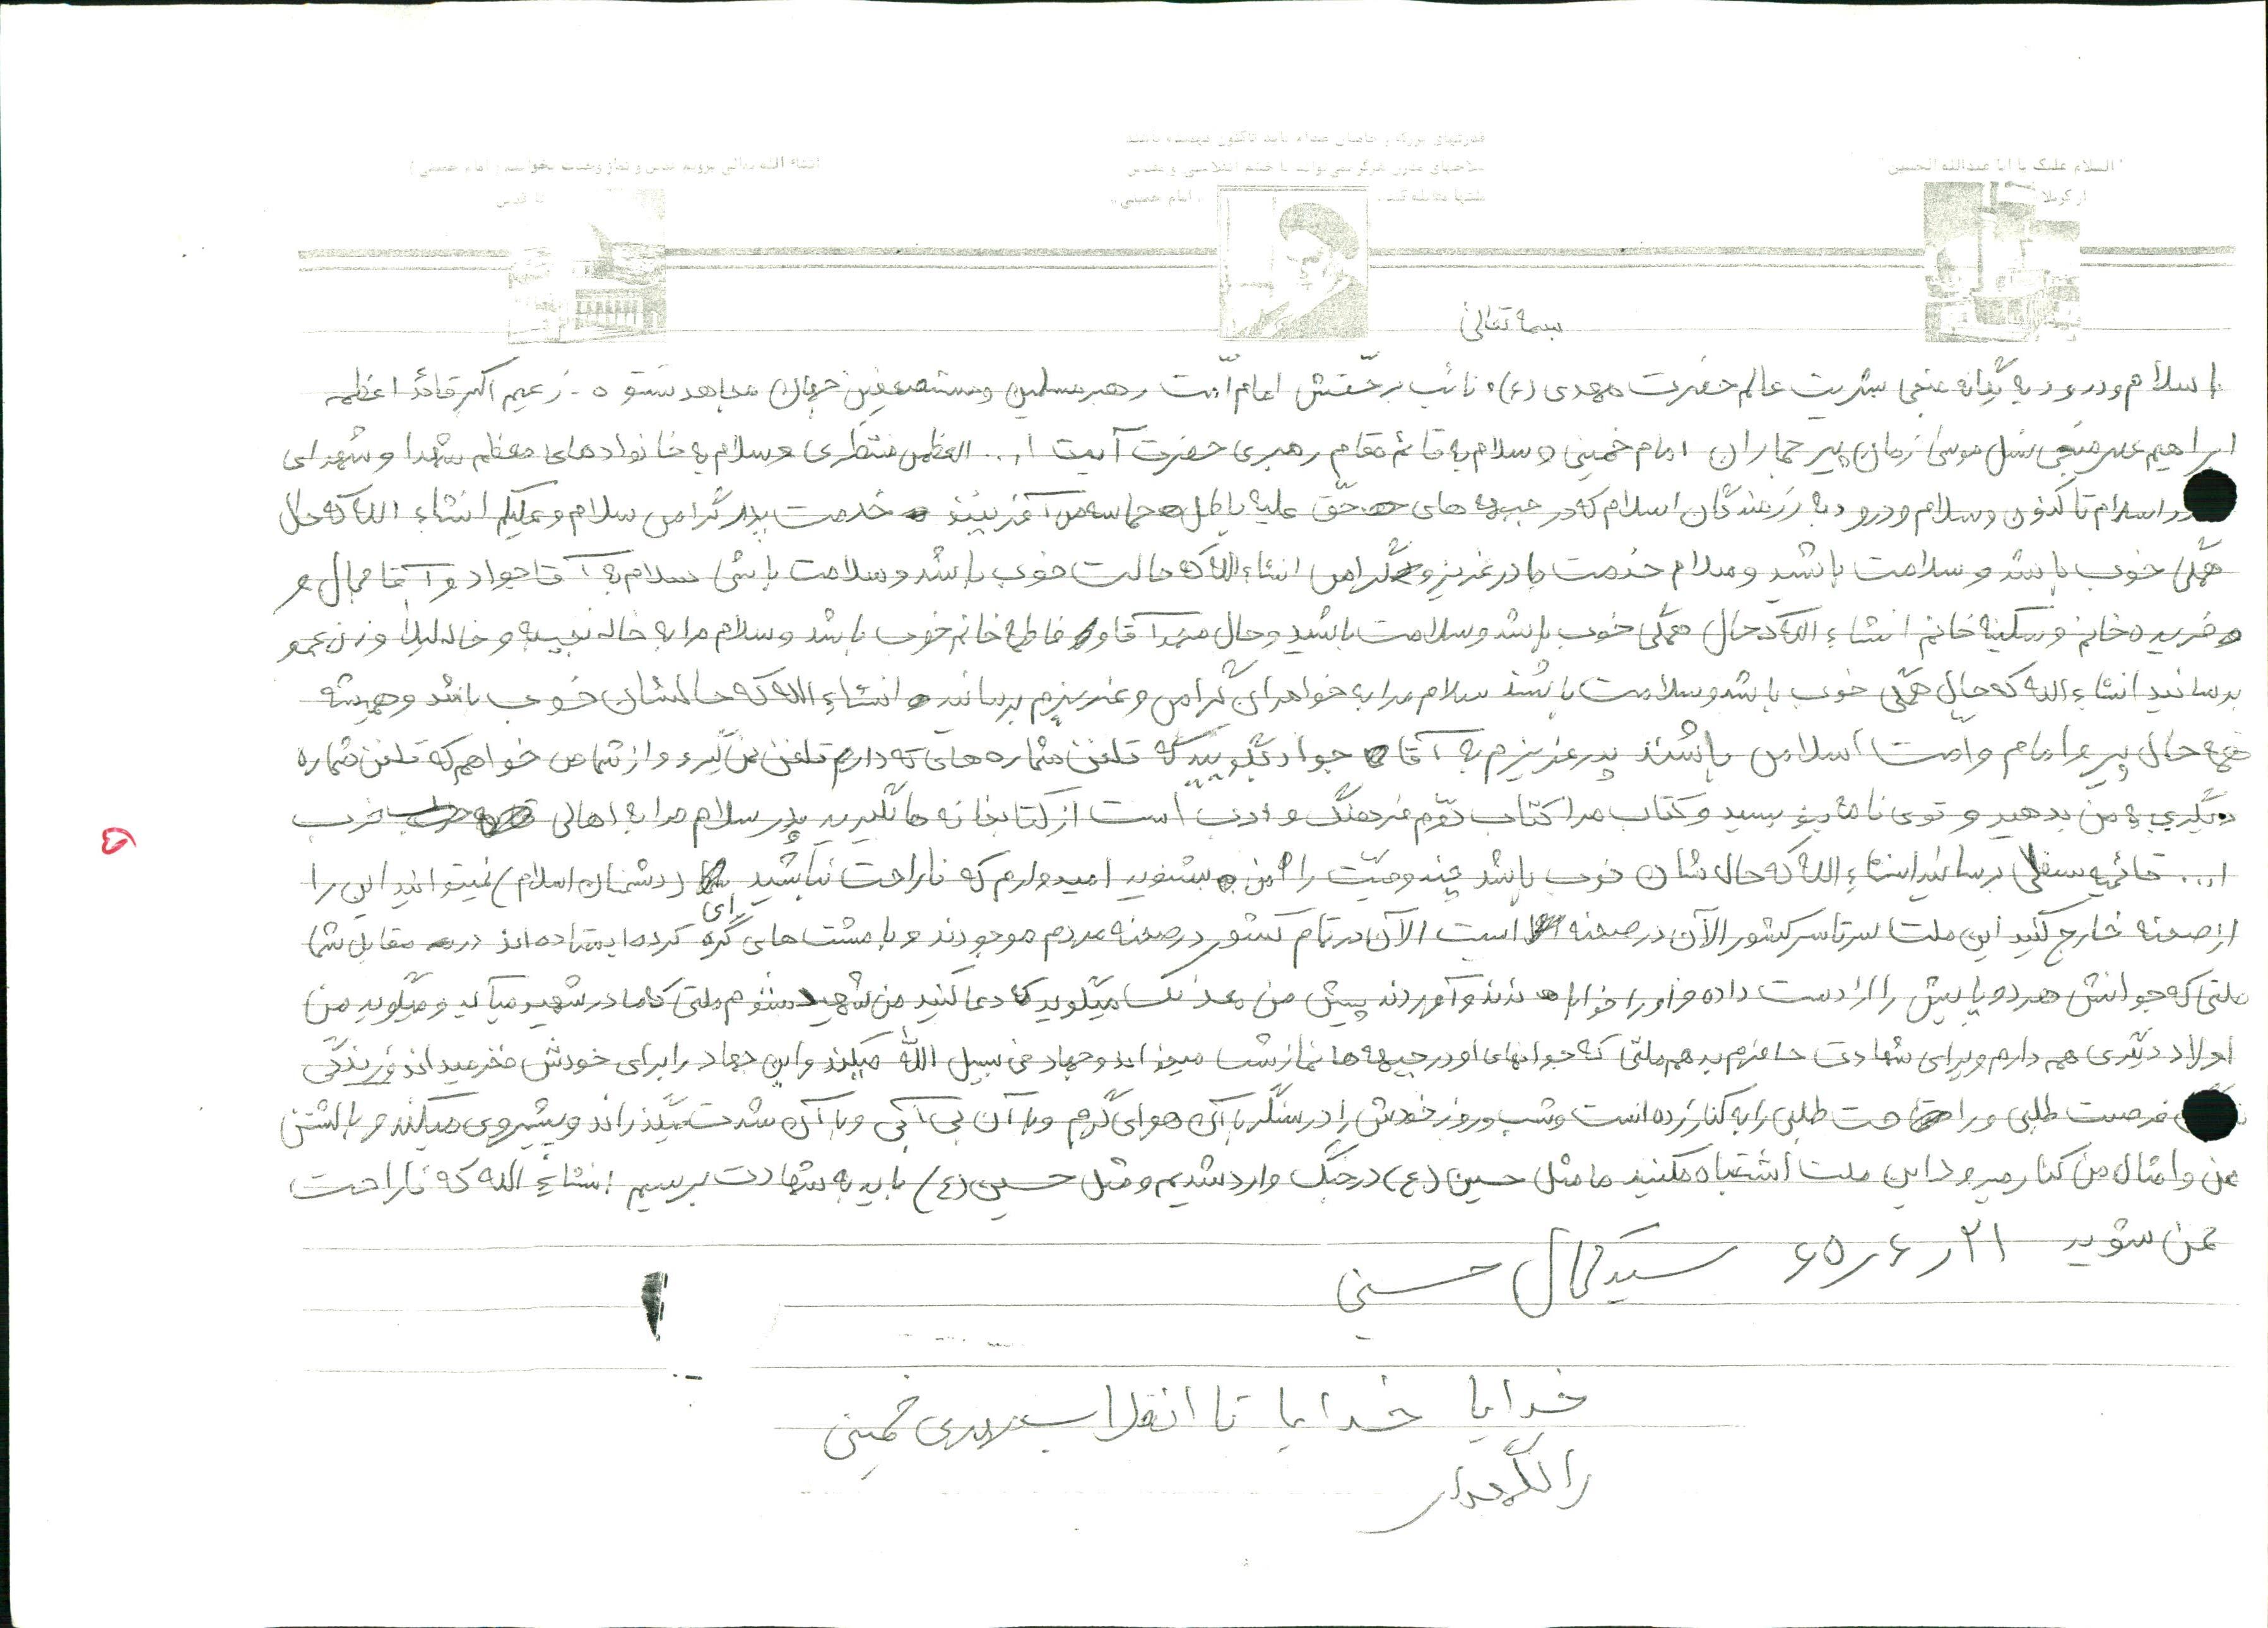 "السلام علیک یا ابا عبدالله الحسین"
از کربلا
قدرتهای بزرگ و حامیان صدام باید تاکنون فهمیده باشند
سلاحهای مدرن هرگز نمی‌تواند با خشم انقلابی و مقدس
ملتها مقابله کند. امام خمینی
انشاء الله زمانی برویم قدس و نماز وحدت بخوانیم (امام خمینی)
تا قدس
بسمه تعالی
با سلام و درود به یگانه منجی بشریت عالم حضرت مهدی (ع) و نائب برحقش امام امت رهبر مسلمین و مستضعفین جهان مجاهد نستوه - زعیم اکبر قائد اعظم
ابراهیم عصر منجی نسل موسی زمان پیر جماران امام خمینی و سلام به قائم مقام رهبری حضرت آیت ا... العظمی منتظری و سلام به خانوادهای معظم شهدا و شهدای
اسلام تا کنون و سلام و درود به رزمندگان اسلام که در جبهه های حق علیه باطل حماسه می آفرینند خدمت پدر گرامی سلام و علیکم انشاء الله که حال
همگی خوب باشد و سلامت باشید و سلام خدمت مادر عزیز و گرامی انشاء الله که حالت خوب باشد و سلامت باشی سلام به آقا جواد و آقا جمال و
فریده خانم و سکینه خانم انشاء الله که حال همگی خوب باشد و سلامت باشید و حال محمد آقا و فاطمه خانم خوب باشد و سلام مرا به خاله نجیبه و خاله لیلا و زن عمو
برسانید انشاء الله که حال همگی خوب باشد و سلامت باشند سلام مرا به خواهران گرامی و عزیزم برسانید انشاء الله که حالشان خوب باشد و همیشه
حال پیرو امام و امت اسلامی باشند پدر عزیزم به آقا جواد بگویید که تلفن شماره های که دارم تلفن نمی گیرد و از شما می خواهم که تلفن شماره
دیگری به من بدهید و توی نامه بنویسید و کتاب مرا کتاب دوم فرهنگ و ادب است از کتابخانه ها بگیرید پدر سلام مرا به اهالی حزب
ا... قائمیه سفلی برسانید انشاء الله که حال شان خوب باشد چند وصیت را از من بشنوید امیدوارم که ناراحت نباشید ای (دشمنان اسلام) نمیتوانید این را
از صحنه خارج کنید این ملت سرتاسر کشور الآن در صحنه است الآن در تمام کشور در صحنه مردم موجودند و با مشت های گره کرده ایستاده اند در مقابل شما
ملتی که جوانش هر دو پایش را از دست داده و او را خوابانده اند و آوردند پیش من میگوید که دعا کنید من شهید بشوم ملتی که مادر شهید میآید و میگوید من
اولاد دیگری هم دارم و برای شهادت حاضرم بدهم ملتی که جوانهای او در جبهه ها نماز شب میخواند و جهاد فی سبیل الله میکند و این جهاد را برای خودش فخر میداند و زندگی
فرصت طلبی و راحت طلبی را به کنار زده است و شب و روز خودش را در سنگر با آن هوای گرم و با آن بی آبی و با آن شدت میگذراند و پیشروی میکند و با کشتن
من و امثال من کنار میرود این ملت اشتباه مکنید ما مثل حسین (ع) در جنگ وارد شدیم و مثل حسین (ع) باید به شهادت برسیم انشاء الله که ناراحت
نمی شوید ۲۱ ر ۶ ر ۶۵ سید کمال حسینی
خدایا خدایا تا انقلاب مهدی خمینی
را نگهدار